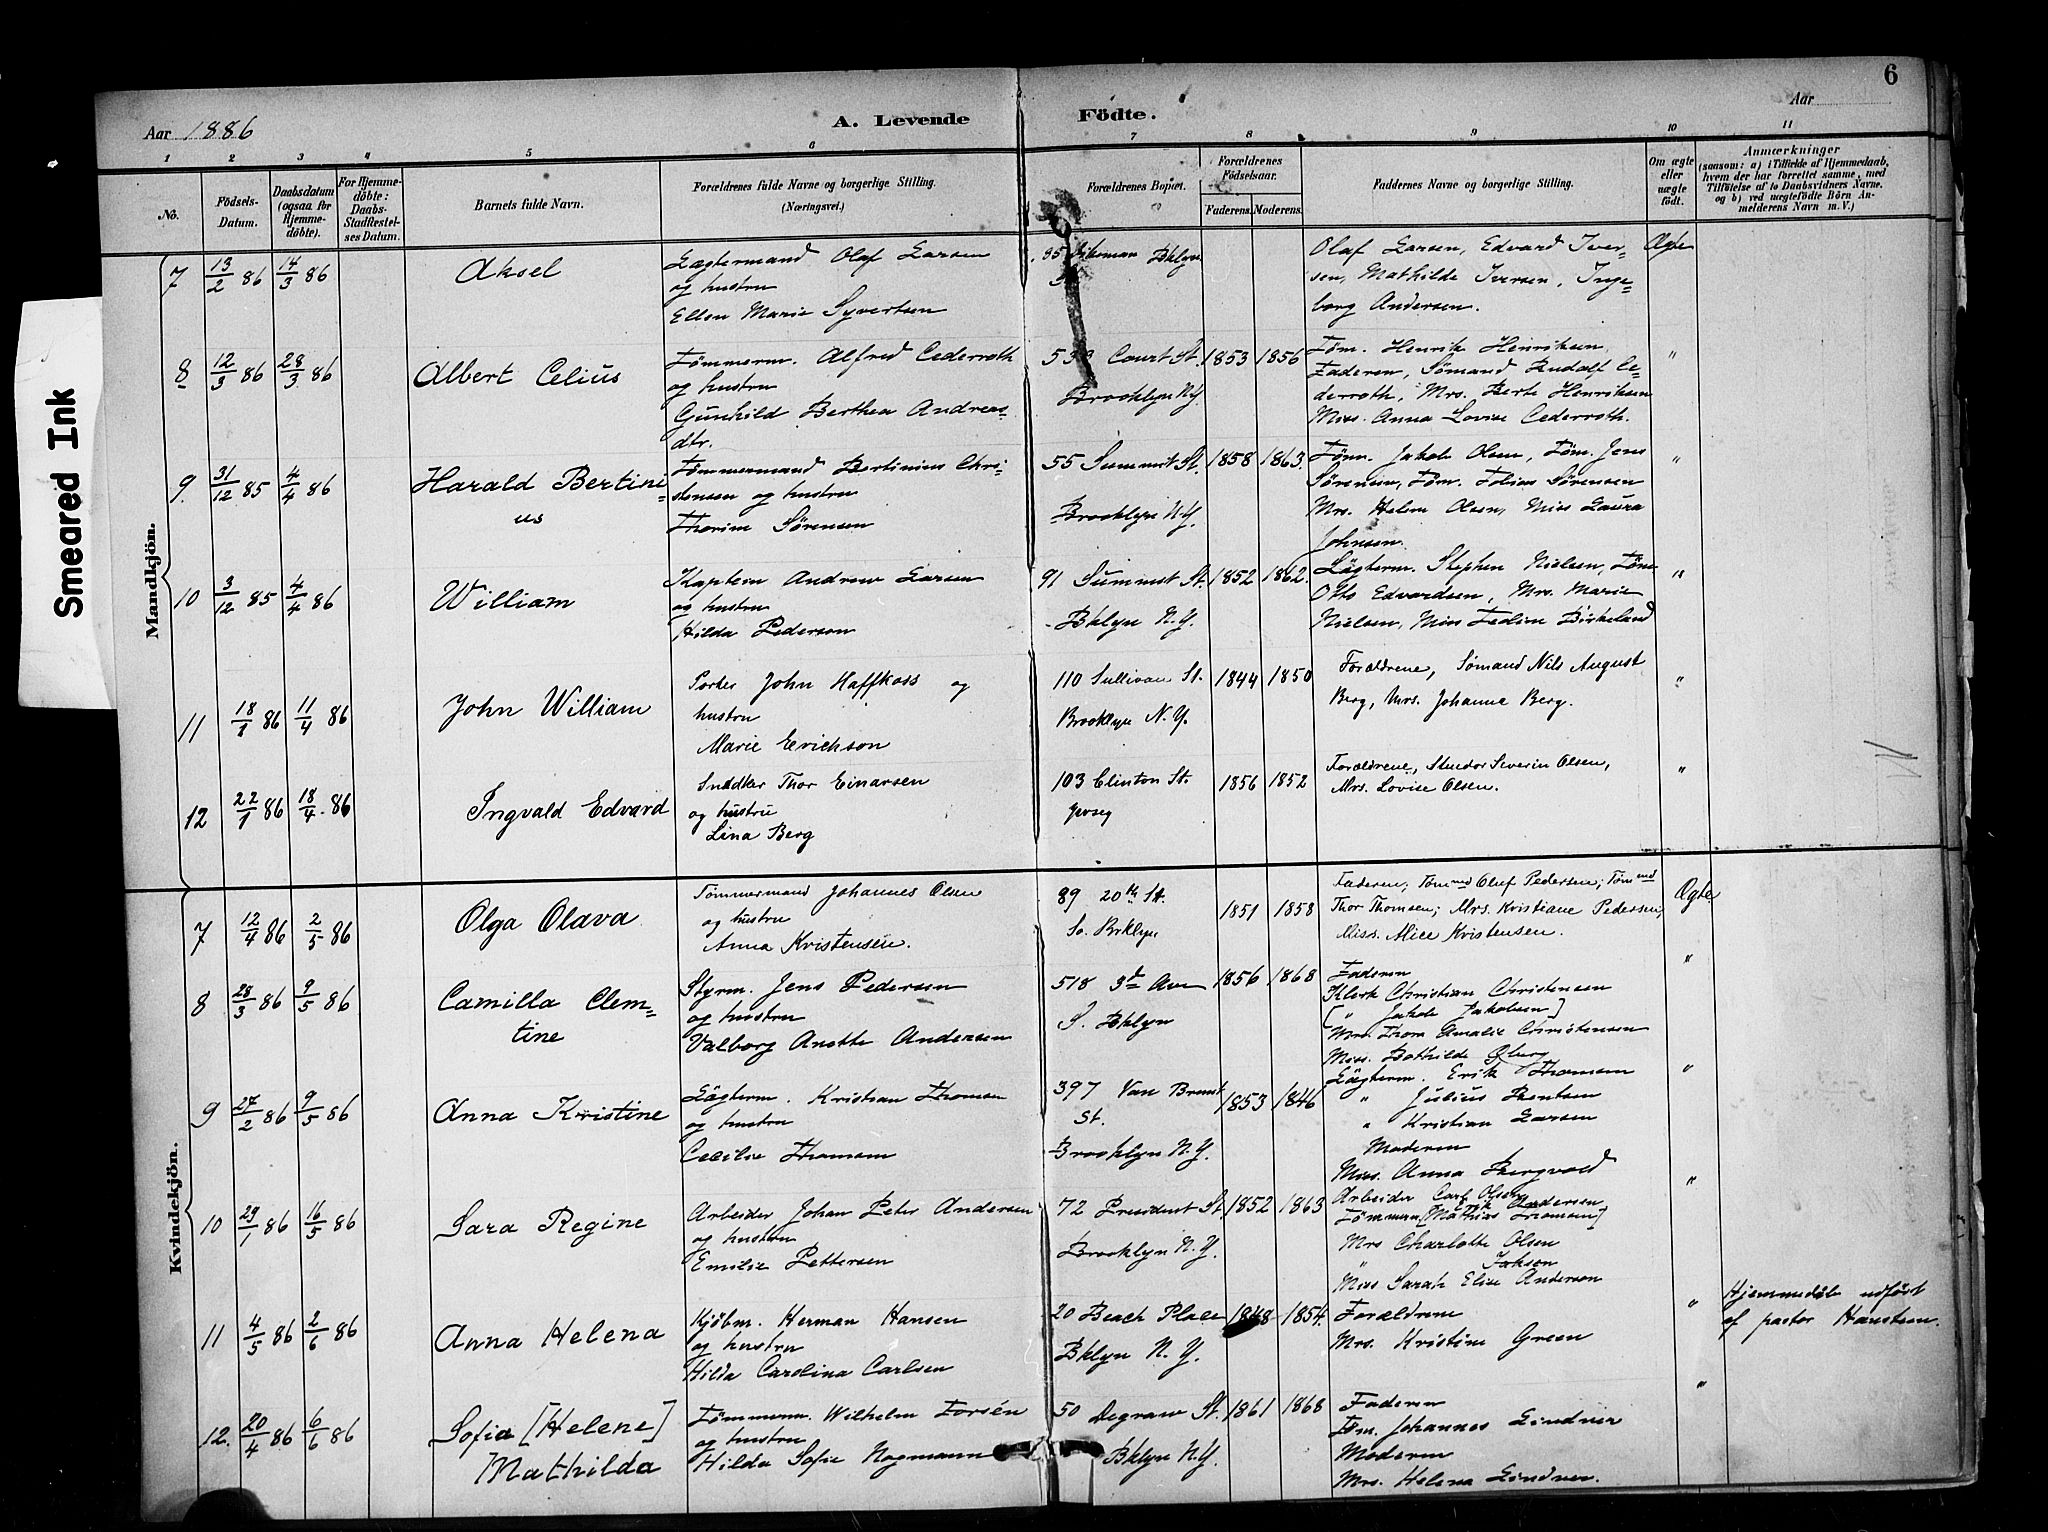 6
Aar 1886
A. Levende Födte.
Aar
1 2 3 4 5 6 7 8 9 10 11
No.
Födsels-Datum.
Daabsdatum (ogsaa for Hjemmedöbte).
For Hjemmedöbte: Daabs-Stadfestelses Datum.
Barnets fulde Navn.
Forældrenes fulde Navne og borgerlige Stilling. (Næringsvei.)
Forældrenes Bopæl.
Forældrenes Födselsaar.
Faderens. Moderens.
Faddernes Navne og borgerlige Stilling.
Om ægte eller uægte födt.
Anmærkninger
(saasom: a) i Tilfælde af Hjemmedaab, hvem der har forrettet samme, med Tilföielse af to Daabsvidners Navne, og b) ved uægtefödte Börn Anmelderens Navn m. V.)
Smeared Ink
Mandkjön.
7 13/2 86 14/3 86 Aksel
Lægtermand Olaf Larsen
og hustru
Ellen Marie Syvertsen
Bklyn
Olaf Larsen, Edvard Iver-
sen, Mathilde Iversen, Inge-
borg Andersen.
Ægte
8 12/3 86 28/3 86 Albert Celius
Tömmerm. Alfred Cederroth
og hustru
Gunhild Berthea Andreas-
dtr.
Court St.
Brooklyn N.Y.
1853 1856
Töm. Henrik Henriksen,
Faderen, Sömand Rudolf Ce-
derroth, Mrs. Berte Henriksen
Miss. Anna Lovise Cederroth.
"
9. 31/12 85 4/4 86 Harald Bertini-
us
Tömmermand Bertinius Chri-
stensen og hustru
Thorine Sörensen
55 Summit St.
Brooklyn N.Y.
1858 1863.
Töm. Jakob Olsen, Töm. Jens
Sörensen, Töm. Tobias Sörensen
Mrs. Helene Olsen, Miss Laura
Johnsen.
"
10 3/12 85 4/4 86 William
Kaptein Andrew Larsen
og hustru
Hilda Pedersen
91 Summit St.
Bklyn N.Y.
1852 1862.
Lägterm. Stephen Nielsen, Töm.
Otto Edvardsen, Mrs. Marie
Nielsen, Miss Birkeland
"
11 18/1 86 11/4 86 John William
Porter John Haffkoss og
hustru
Marie Erichson
110 Sullivan St.
Brooklyn N.Y.
1844 1850
Forældrene, Sömand Nils August
Berg, Mrs. Johanne Berg.
"
12 22/1 86 18/4 86 Ingvald Edvard
Snedker Thor Einarsen
og hustru
Lina Berg
103 Clinton St.
1856 1852
Forældrene, Severin Olsen,
Mrs. Lovise Olsen.
"
Kvindekjön.
7 12/4 86 2/5 86 Olga Olava
Tömmermand Johannes Olsen
og hustru
Anna Kristensen.
89 20th St.
So. Brklyn.
1851 1858
Faderen; Tömmd Oluf Pedersen; Tömmd
Thor Thomsen; Mrs. Kristiane Pedersen,
Miss. Alice Kristensen.
Ægte
8 28/3 86 9/5 86 Camilla Clem-
tine
Styrm. Jens Pedersen
og hustru
Valborg Anette Andersen
518 3d Ave
S. Bklyn
1856 1868
Faderen
Klerk Christian Christensen
[" Jakob Jakobsen]
Mrs. Thom Amalie Christensen
Miss. Bothilde Öberg
"
9 27/2 86 9/5 86 Anna Kristine
Lägterm. Kristian Thomsen
og hustru
Cecilie Thomsen
397 Van Brunt
St.
Brooklyn N.Y.
1853 1846
Lägterm. Erik Thomsen
" Julius Bentsen
" Kristian Larsen
Moderen
Miss. Anna Bergvold
"
10 29/1 86 16/5 86 Sara Regine
Arbeider Johan Peter Andersen
og hustru
Emilie Pettersen
72 President St.
Brooklyn N.Y.
1852 1863
Arbeider Carl Olsen
Erik Andersen
Tömmerm. [Mathias Thomsen]
Mrs Charlotte Olsen
" Jakson
Miss Sarah Elise Anderson
"
11 4/5 86 2/6 86 Anna Helena
Kjöbm. Herman Hansen
og hustru
Hilda Carolina Carlsen
20 Beach Place
Bklyn N.Y.
1848 1854.
Forældrene
Mrs. Kristine Green
"
Hjemmedåb udfört
af pastor Hansteen.
12. 20/4 86 6/6 86 Sofia [Helene]
Mathilda
Tömmerm. Wilhelm Forsén
og hustru
Hilda Sofie Nagmann
50 Degraw St.
Bklyn N.Y.
1861 1868
Faderen
Töm. Johannes Lindner
Moderen
Mrs. Helena Lindner.
"